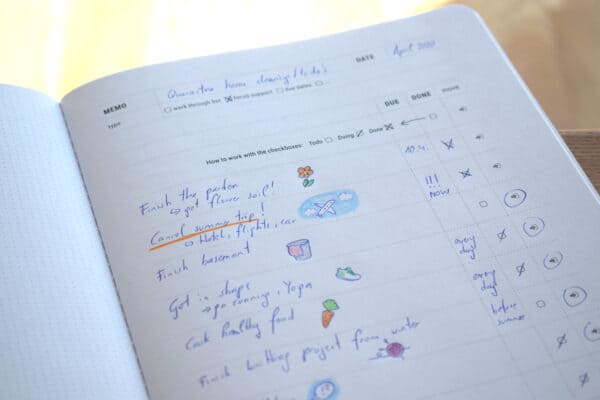 MEMO Quarantine home cleaning/to do's DATE April 2020
Type work through list focus support Due dates
How to work with the checkboxes: Todo Doing Done DUE DONE MOVE
Finish the garden 10.4.
↳ get flower soil!
Cancel summer trip! !!! now
↳ Hotel, flights, car
Finish basement
Get in shape every day
↳ go running, Yoga
Cook healthy food every day
Finish knitting project from winter before summer